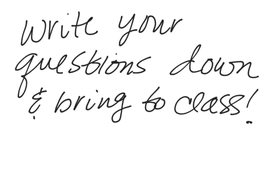 Write your
questions down
& bring to class!